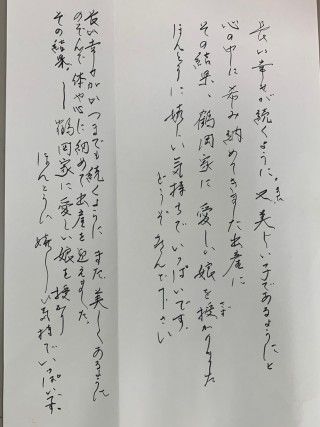 長い幸せが続くように、又美しい子であるようにと
心の中に希み納めてきました出産に
その結果、鶴岡家に愛しい娘を授かりました
ほんとうに嬉しい気持ちでいっぱいです。
どうぞよんで下さい
長い幸せがいつまでも続くように また美しくあるように
のぞんで体や心に納めて出産を迎えました。
その結果、鶴岡家に愛しい娘を授かり
ほんとうに嬉しい気持でいっぱいです。